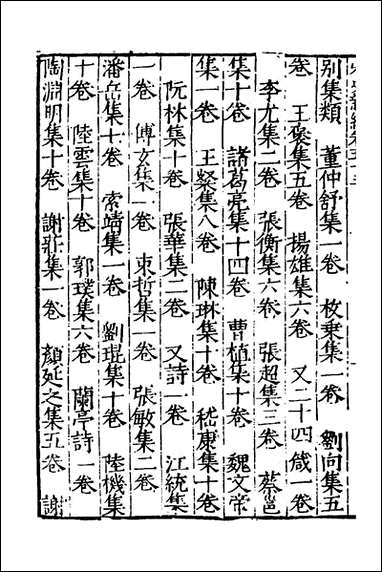 別集類 董仲舒集一卷 枚乗集一卷 劉向集五
卷 王襃集五卷 揚雄集六卷 又二十四箴一卷
李尤集二卷 張衡集六卷 張超集三卷 蔡邕
集十卷 諸葛亮集十四卷 曹植集十卷 魏文帝
集一卷 王粲集八卷 陳琳集十卷 嵇康集十卷
阮林集十卷 張華集二卷 又詩一卷 江統集
一卷 傅玄集一卷 束哲集一卷 張敏集二卷
潘岳集七卷 索靖集一卷 劉琨集十卷 陸機集
十卷 陸雲集十卷 郭璞集六卷 蘭亭詩一卷
陶淵明集十卷 謝莊集一卷 顏延之集五卷 謝